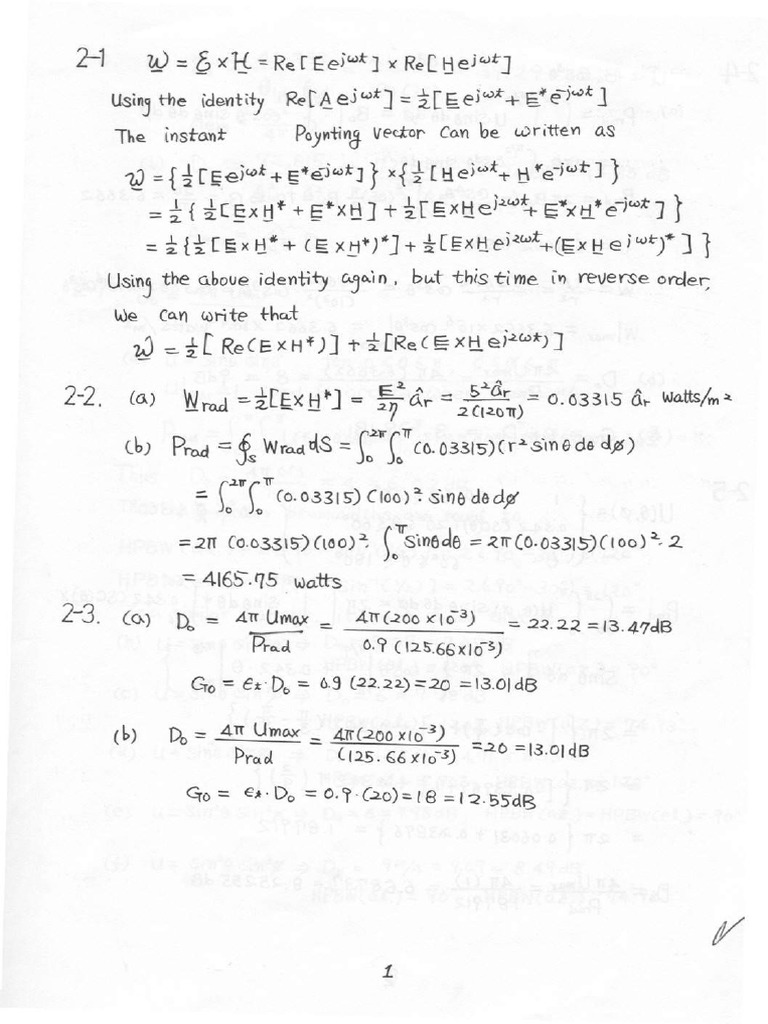 2-1 W = E × H = Re[Ee^{jωt}] × Re[He^{jωt}]
Using the identity Re[Ae^{jωt}] = ½[Ee^{jωt} + E*e^{-jωt}]
The instant Poynting vector can be written as
W = {½[Ee^{jωt} + E*e^{jωt}]} × {½[He^{jωt} + H*e^{jωt}]}
= ½{½[E×H* + E*×H] + ½[E×He^{j2ωt} + E*×H*e^{-jωt}]}
= ½{½[E×H* + (E×H*)*] + ½[E×He^{j2ωt} + (E×He^{jωt})*]}
Using the above identity again, but this time in reverse order,
we can write that
W = ½[Re(E×H*)] + ½[Re(E×He^{j2ωt})]
2-2. (a) Wrad = ½[E×H*] = E²/2η âr = 5²âr/2(120π) = 0.03315 âr Watts/m²
(b) Prad = ∮s Wrad dS = ∫₀^{2π}∫₀^{π} (0.03315)(r² sinθ dθ dø)
= ∫₀^{2π}∫₀^{π} (0.03315)(100)² sinθ dθ dø
= 2π (0.03315)(100)² · ∫₀^{π} sinθdθ = 2π(0.03315)(100)² · 2
= 4165.75 watts
2-3. (a) D₀ = 4π Umax/Prad = 4π(200×10⁻³)/0.9(125.66×10⁻³) = 22.22 = 13.47dB
G₀ = et·D₀ = 0.9(22.22) = 20 = 13.01dB
(b) D₀ = 4π Umax/Prad = 4π(200×10⁻³)/(125.66×10⁻³) = 20 = 13.01dB
G₀ = et·D₀ = 0.9·(20) = 18 = 12.55dB
1